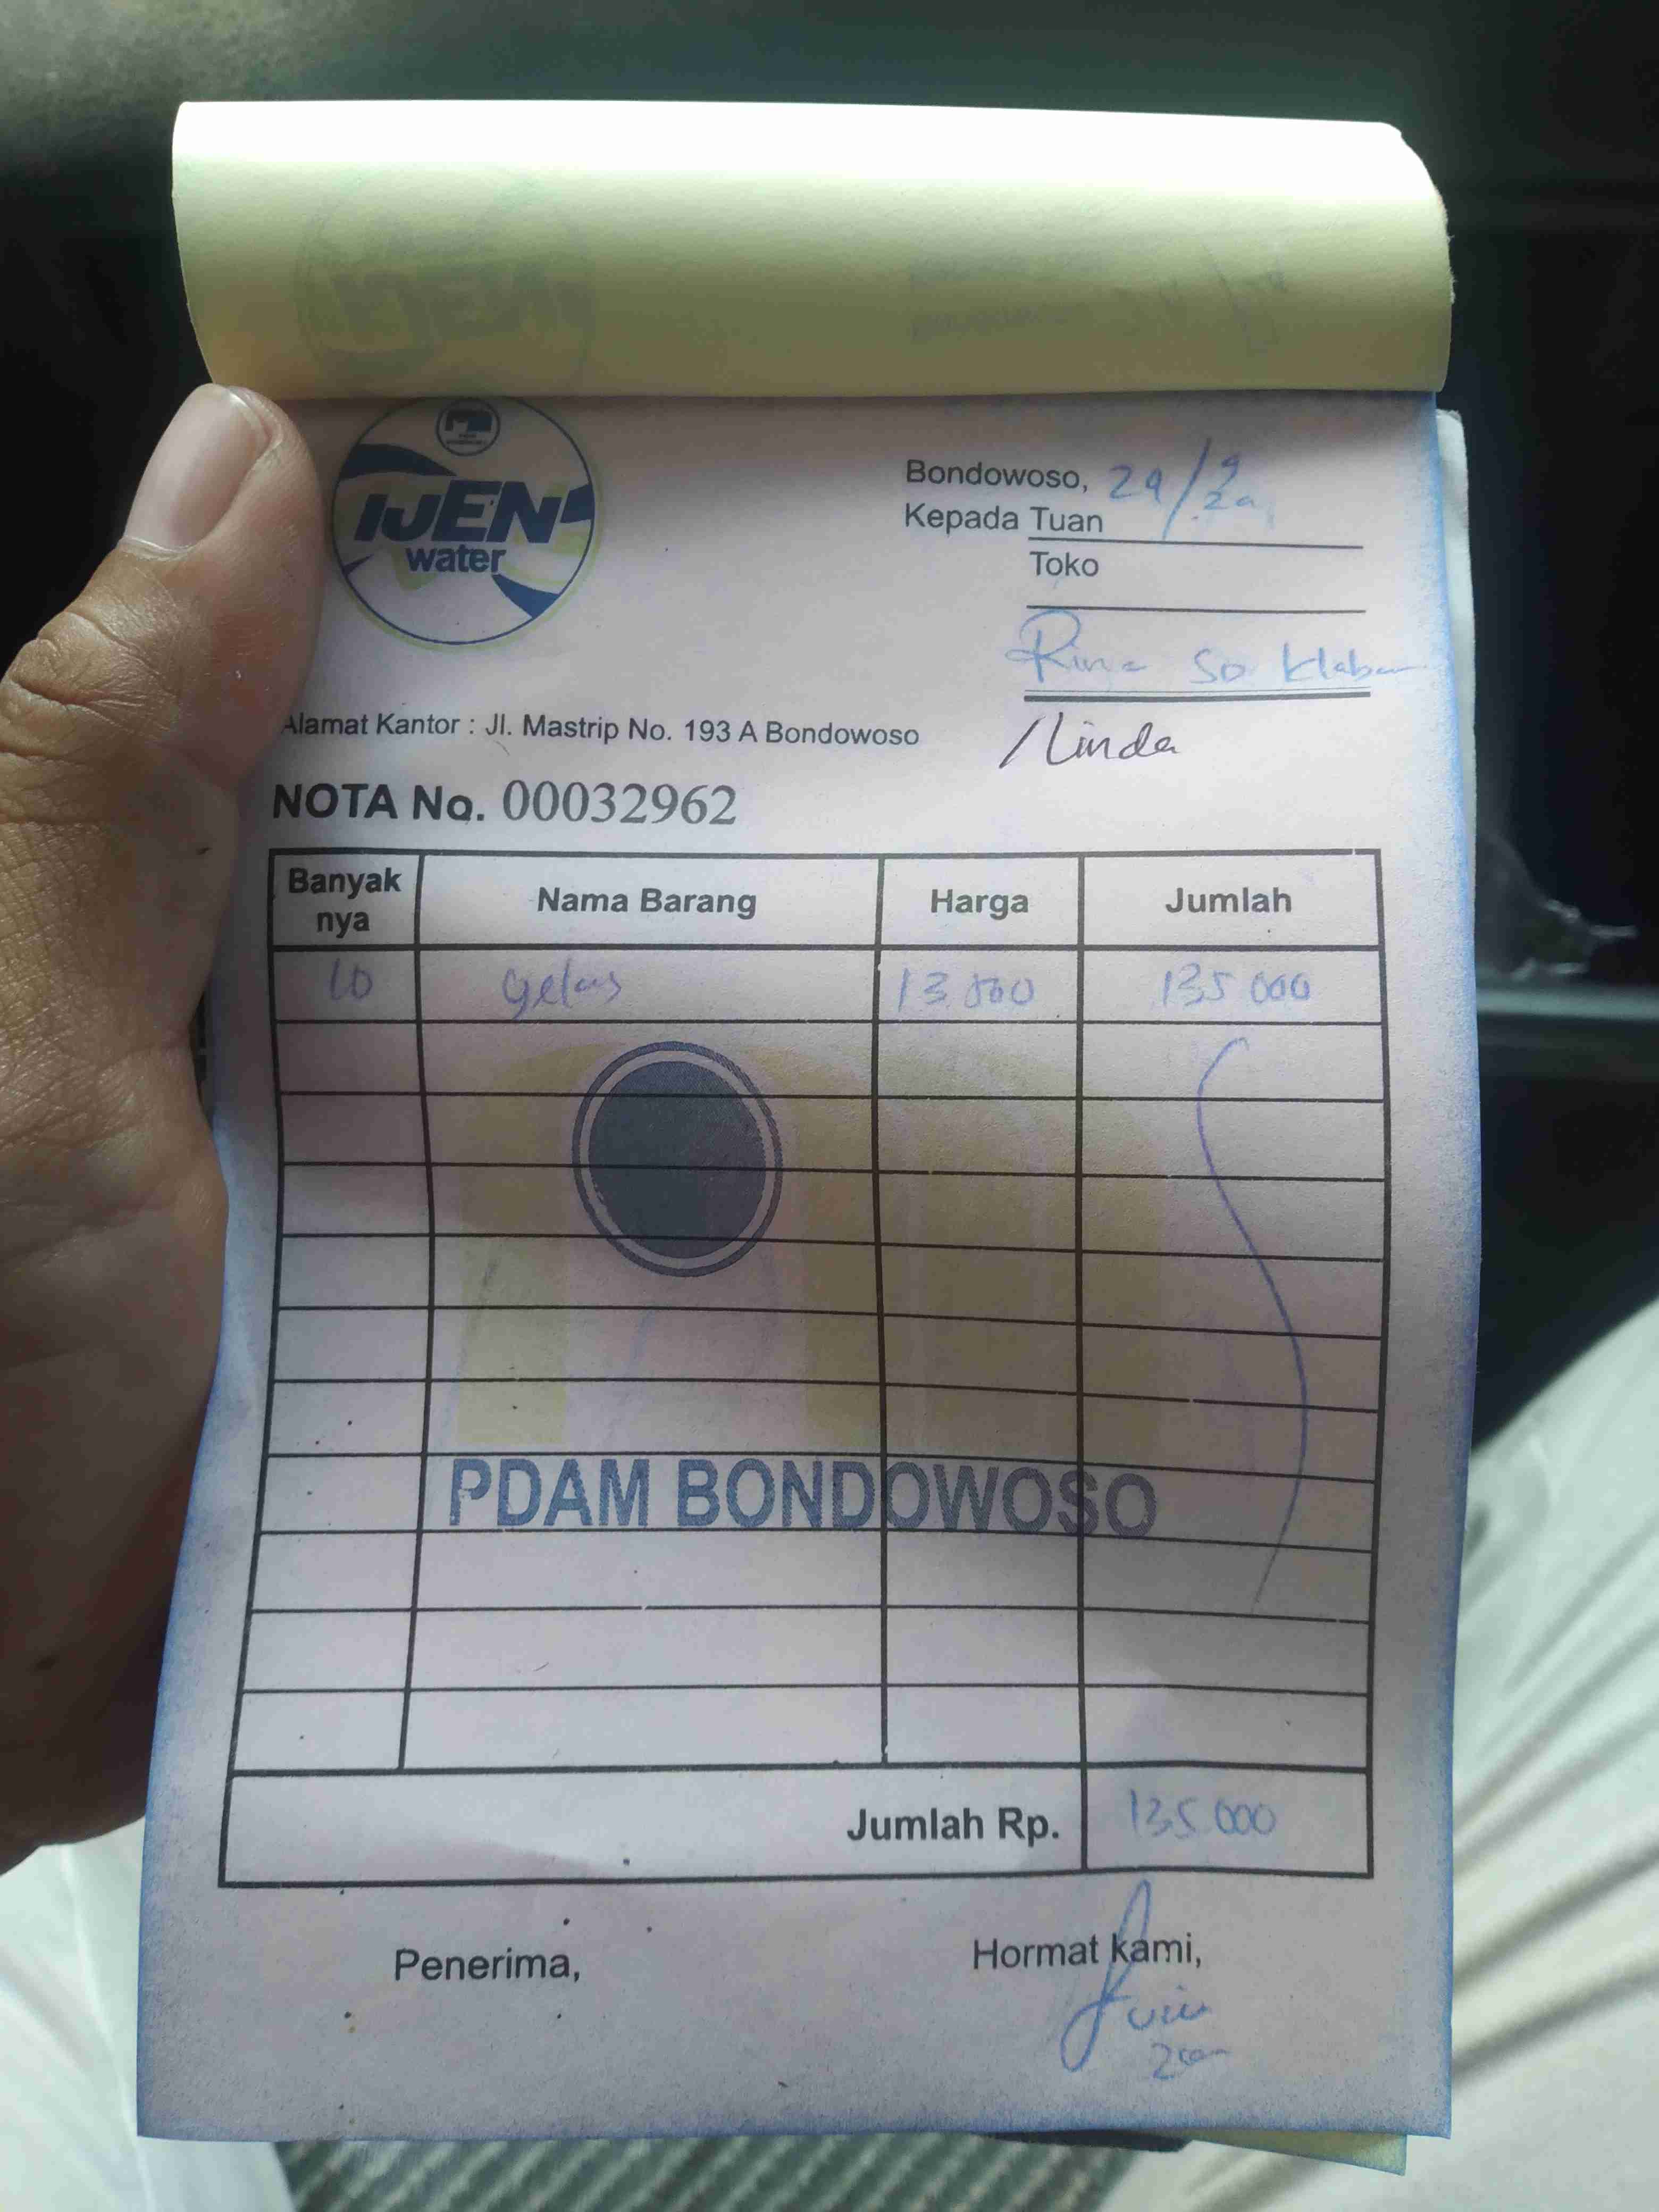 IJEN
water
Bondowoso, 29/9
Kepada Tuan
Toko
So Klaban
/Linda
Alamat Kantor : Jl. Mastrip No. 193 A Bondowoso
NOTA No. 00032962
Banyak nya Nama Barang Harga Jumlah
10 gelas 13.500 135.000
PDAM BONDOWOSO
Jumlah Rp. 135.000
Penerima, Hormat kami,